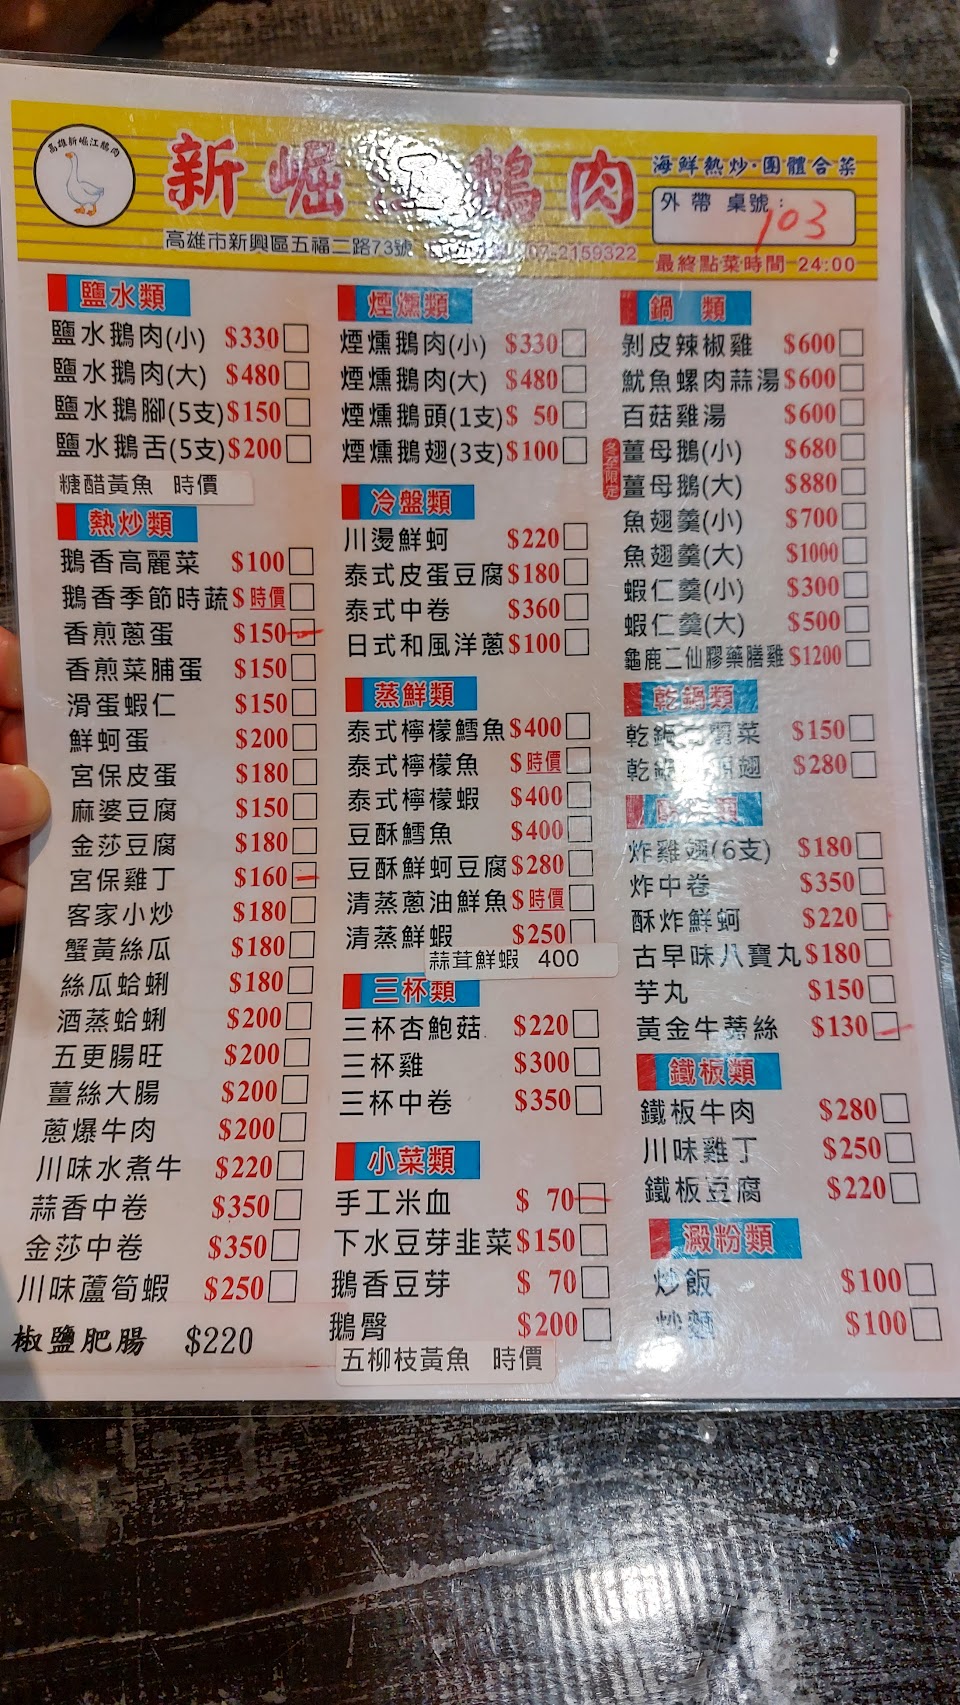 高雄新崛江鵝肉
新崛江鵝肉
海鮮熱炒·團體合菜
外帶 桌號：
103
高雄市新興區五福二路73號
07-2159322
最終點菜時間 24:00
鹽水類
鹽水鵝肉(小) $330
鹽水鵝肉(大) $480
鹽水鵝腳(5支) $150
鹽水鵝舌(5支) $200
糖醋黃魚 時價
熱炒類
鵝香高麗菜 $100
鵝香季節時蔬 $時價
香煎蔥蛋 $150
香煎菜脯蛋 $150
滑蛋蝦仁 $150
鮮蚵蛋 $200
宮保皮蛋 $180
麻婆豆腐 $150
金莎豆腐 $180
宮保雞丁 $160
客家小炒 $180
蟹黃絲瓜 $180
絲瓜蛤蜊 $180
酒蒸蛤蜊 $200
五更腸旺 $200
薑絲大腸 $200
蔥爆牛肉 $200
川味水煮牛 $220
蒜香中卷 $350
金莎中卷 $350
川味蘆筍蝦 $250
椒鹽肥腸 $220
煙燻類
煙燻鵝肉(小) $330
煙燻鵝肉(大) $480
煙燻鵝頭(1支) $ 50
煙燻鵝翅(3支) $100
冷盤類
川燙鮮蚵 $220
泰式皮蛋豆腐 $180
泰式中卷 $360
日式和風洋蔥 $100
蒸鮮類
泰式檸檬鱈魚 $400
泰式檸檬魚 $時價
泰式檸檬蝦 $400
豆酥鱈魚 $400
豆酥鮮蚵豆腐 $280
清蒸蔥油鮮魚 $時價
清蒸鮮蝦 $250
蒜茸鮮蝦 400
三杯類
三杯杏鮑菇 $220
三杯雞 $300
三杯中卷 $350
小菜類
手工米血 $ 70
下水豆芽韭菜 $150
鵝香豆芽 $ 70
鵝臀 $200
五柳枝黃魚 時價
鍋 類
剝皮辣椒雞 $600
魷魚螺肉蒜湯 $600
百菇雞湯 $600
冬至限定
薑母鵝(小) $680
薑母鵝(大) $880
魚翅羹(小) $700
魚翅羹(大) $1000
蝦仁羹(小) $300
蝦仁羹(大) $500
龜鹿二仙膠藥膳雞 $1200
乾鍋類
乾鍋高麗菜 $150
乾鍋 翅 $280
類
炸雞翅(6支) $180
炸中卷 $350
酥炸鮮蚵 $220
古早味八寶丸 $180
芋丸 $150
黃金牛蒡絲 $130
鐵板類
鐵板牛肉 $280
川味雞丁 $250
鐵板豆腐 $220
澱粉類
炒飯 $100
炒麵 $100